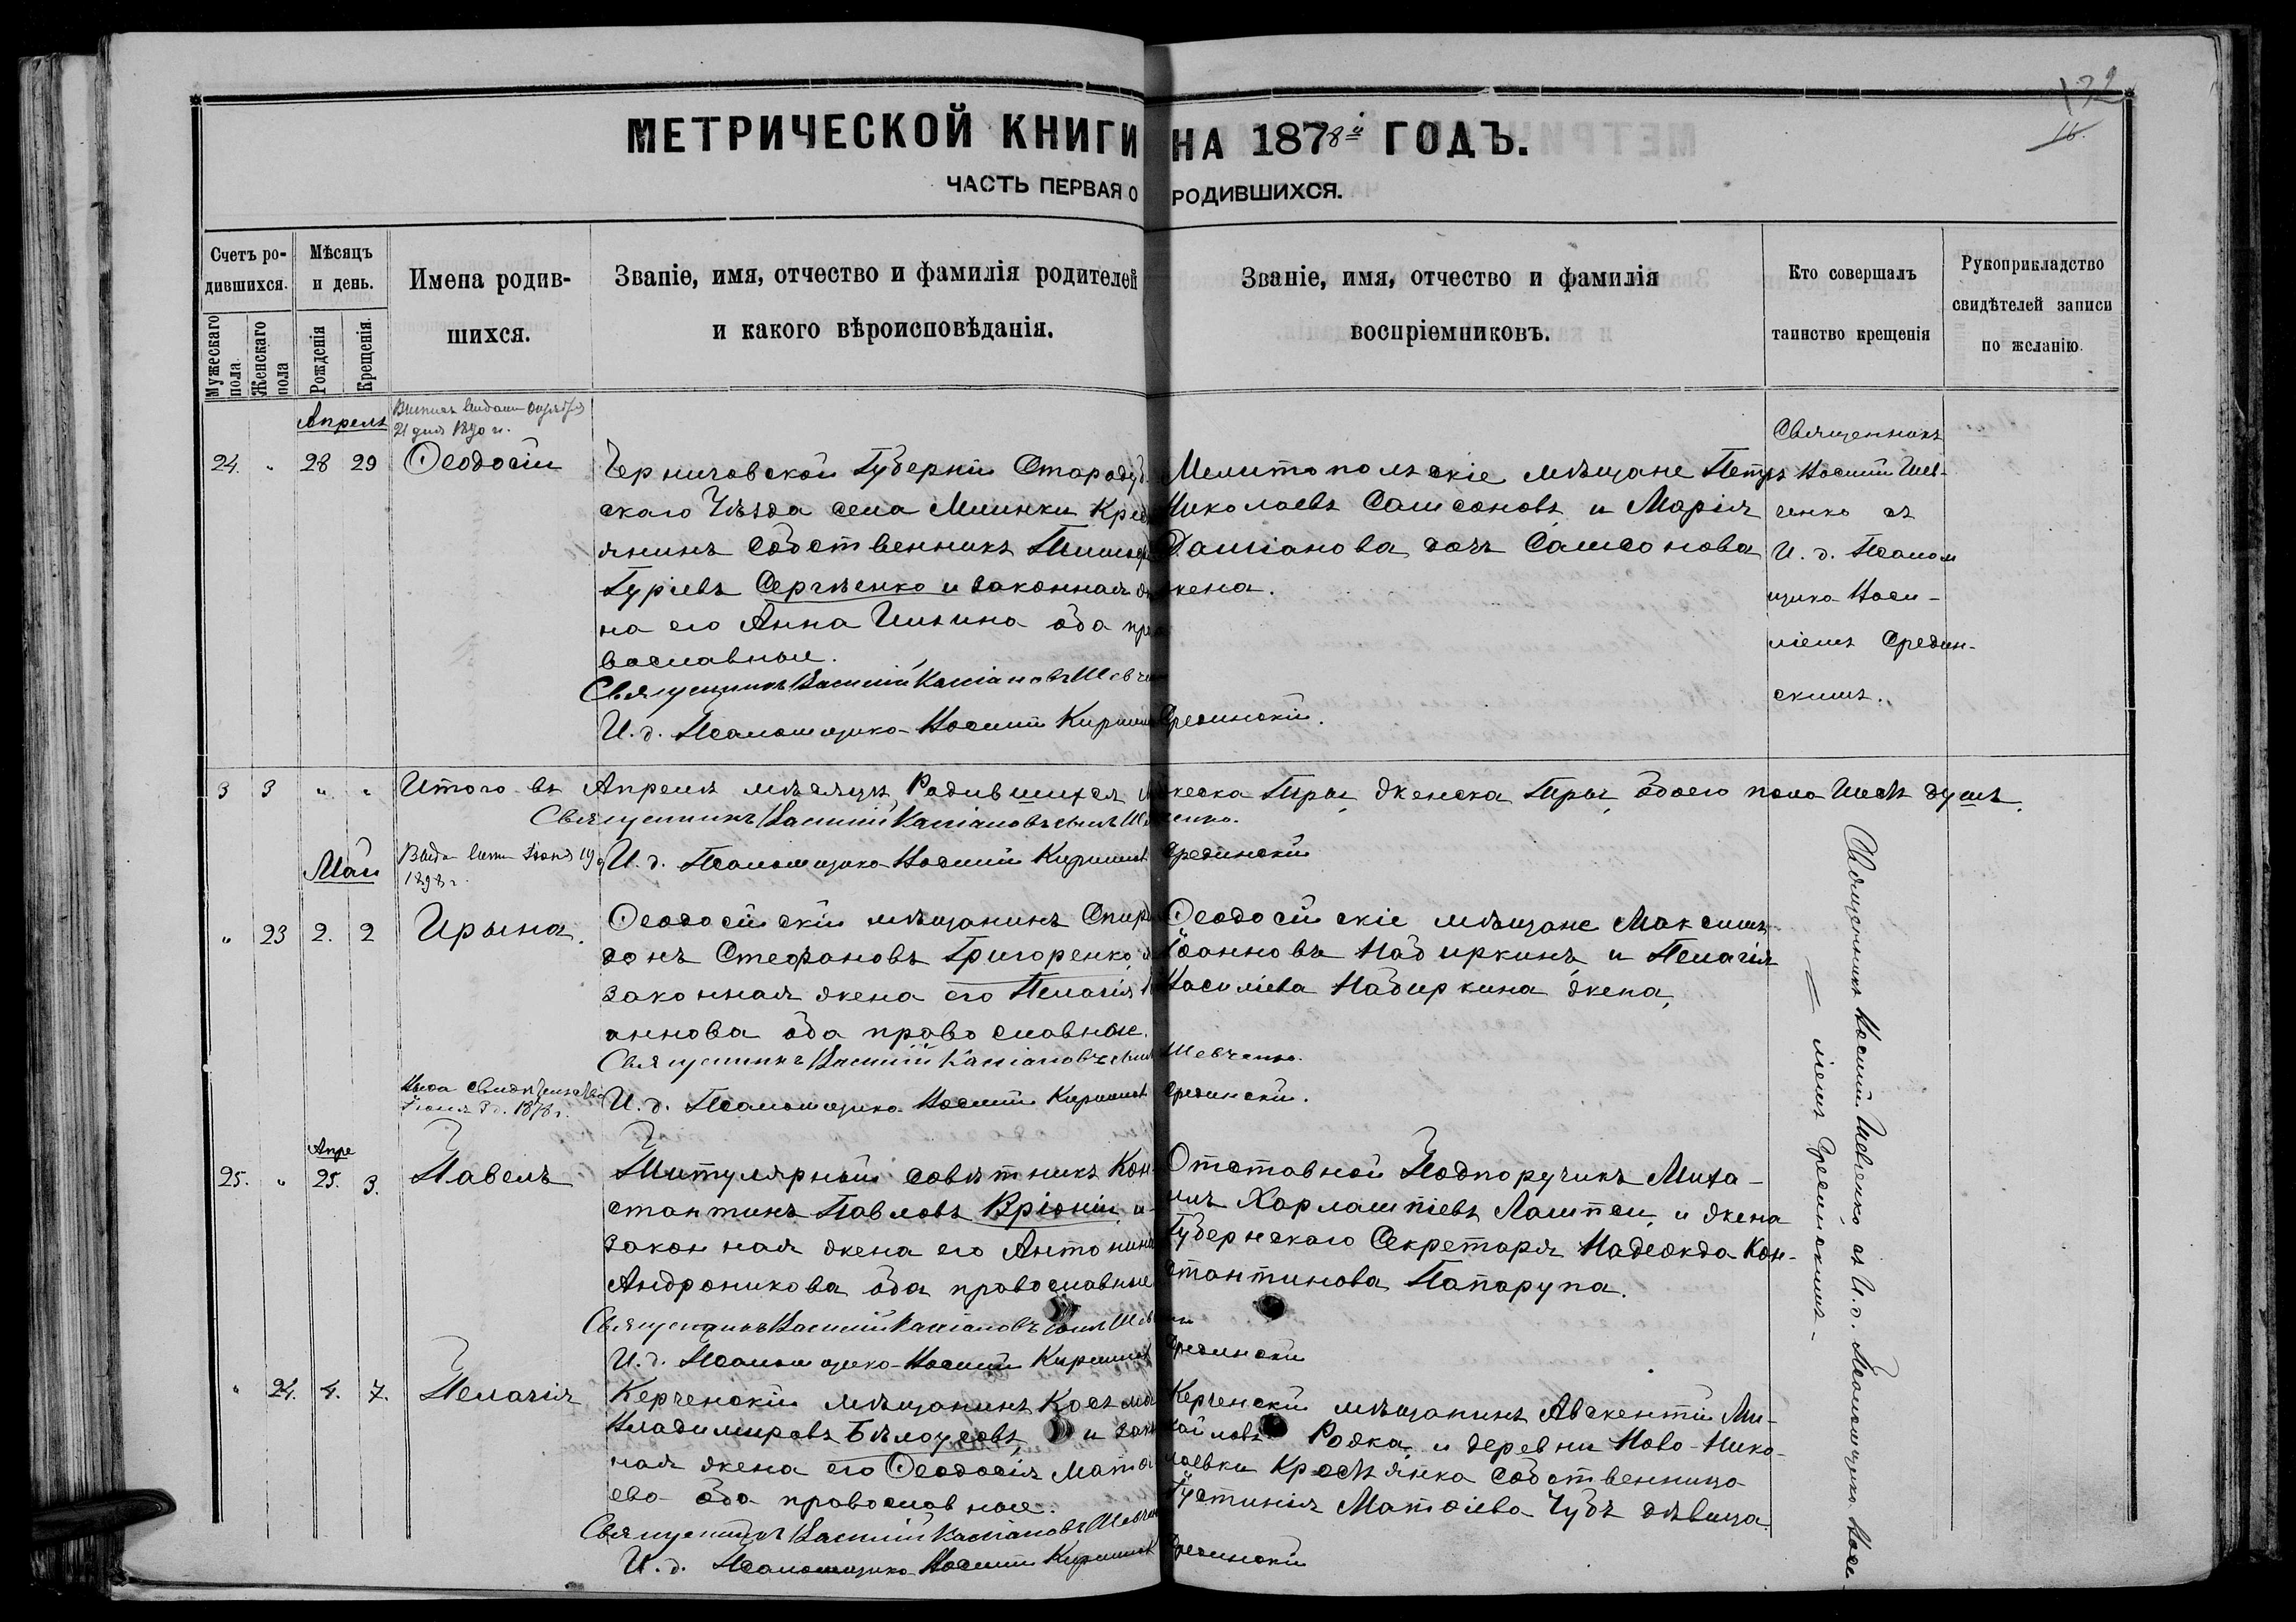 132
16.
МЕТРИЧЕСКОЙ КНИГИ НА 1878й ГОДЪ.
ЧАСТЬ ПЕРВАЯ О РОДИВШИХСЯ.
Счетъ ро-
дившихся.
Мужескаго пола.
Женскаго пола
Мѣсяцъ
и день.
Рожденія
Крещенія.
Имена родив-
шихся.
Званіе, имя, отчество и фамилія родителей
и какого вѣроисповѣданія.
Званіе, имя, отчество и фамилія
воспріемниковъ.
Кто совершалъ
таинство крещенія
Рукоприкладство
свидѣтелей записи
по желанію.
Апрель
21 дня 1890 г.
24. " 28 29 Ѳеодосій
Черниговской Губерніи Стародуб-
скаго Уѣзда села Млинки Крес
янинъ Собственникъ Тимоф
Гуріевъ Сергѣенко и законная же
на его Анна Ильина оба пра
вославные.
Священникъ Василій Кассіановъ Шевчен
И. д. Псаломщика Василій Кирилл Срединскій.
Мелитопольскіе мѣщане Петръ
Николаевъ Самсоновъ и Марія
Даміанова дочь Самсонова
жена.
Священникъ
Василій Шев-
ченко съ
И. д. Псалом
щика Васи-
ліемъ Средин-
скимъ.
3 3 " " Итого въ Апрелѣ мѣсяцѣ Родившихся мужеска Три, женска Три, обоего пола Шесть душъ.
Священникъ Василій Кассіановъ сынъ Шевченко.
И. д. Псаломщика Василій Кирилл Срединскій
Май
1898 г.
" 23 2. 2 Ирына.
Ѳеодосійскій мѣщанинъ Спири
донъ Стефановъ Григоренко, и
законная жена его Пелагія
аннова оба православные.
Священникъ Василій Кассіановъ сынъ Шевченко.
И. д. Псаломщика Василій Кирилл Срединскій.
Ѳеодосійскіе мѣщане Максимъ
Іоанновъ Набиркинъ и Пелагія
Василіева Набиркина жена,
Выда свидѣтельство
Іюня 3 д. 1878 г.
Апре
25. " 25. 3. Павелъ
Титулярный совѣтникъ Кон-
стантинъ Павловъ Вріоній и
законная жена его Антонина
Андроникова оба православные
Священникъ Василій Кассіановъ сынъ Шев
И. д. Псаломщика Василій Кирилл Срединскій
Отставной Подпоручикъ Миха-
илъ Харлампіевъ Лампси, и жена
Губернскаго Секретаря Надежда Кон-
стантинова Папарупа.
" 24. 4. 7. Пелагія
Керченскій мѣщанинъ Косьма
Владимировъ Бѣлоусовъ, и закон
ная жена его Ѳеодосія Матѳі
ева оба православные.
Священникъ Василій Кассіановъ Шевчен
И. д. Псаломщика Василій Кирилл Срединскій
Керченскій мѣщанинъ Авксентій Ми-
хайловъ Рожка и деревни Ново-Нико-
лаевки Крестьянка Собственница
Іустинія Матѳіева Чубъ дѣвица.
Священникъ Василій Шевченко съ И. д. Псаломщика Васи-
ліемъ Срединскимъ